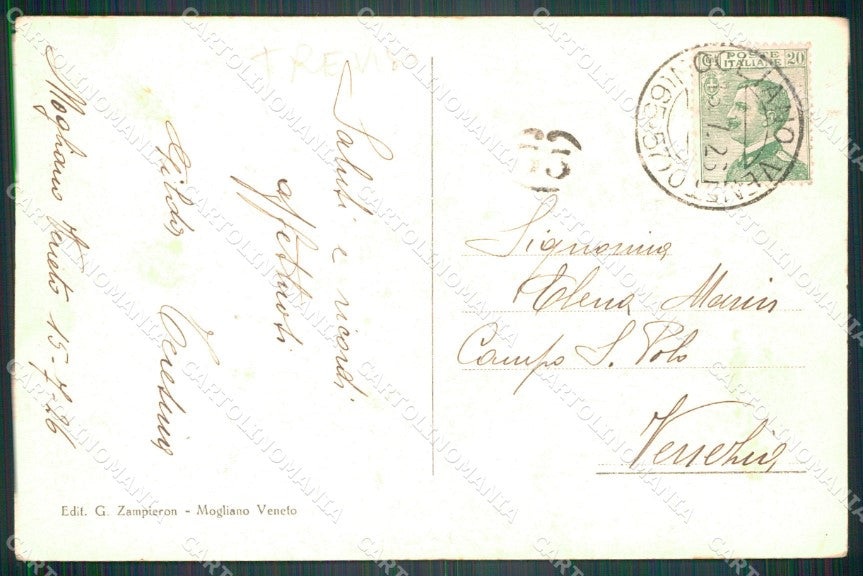 TREVIS
Mogliano Veneto 15-7-26
Saluti e ricordi
affettuosi
Gilda Teresina
POSTE
ITALIANE 20
MOGLIANO VENETO
7.26
Signorina
Elena Marin
Campo S. Polo
Venezia
Edit. G. Zampieron - Mogliano Veneto
CARTOLINOMANIA